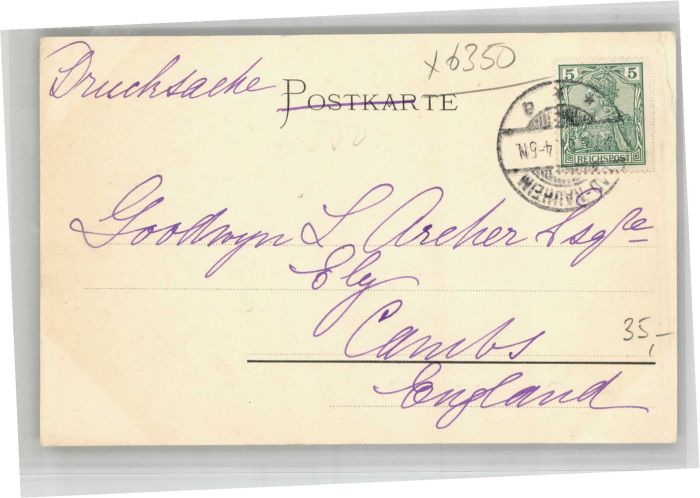 Drucksache
x6350
POSTKARTE
5 5
REICHSPOST
4-5N.
BAD-NAUHEIM
a
Goodwyn L Archer Esqre
Ely
Cambs
England
35,-